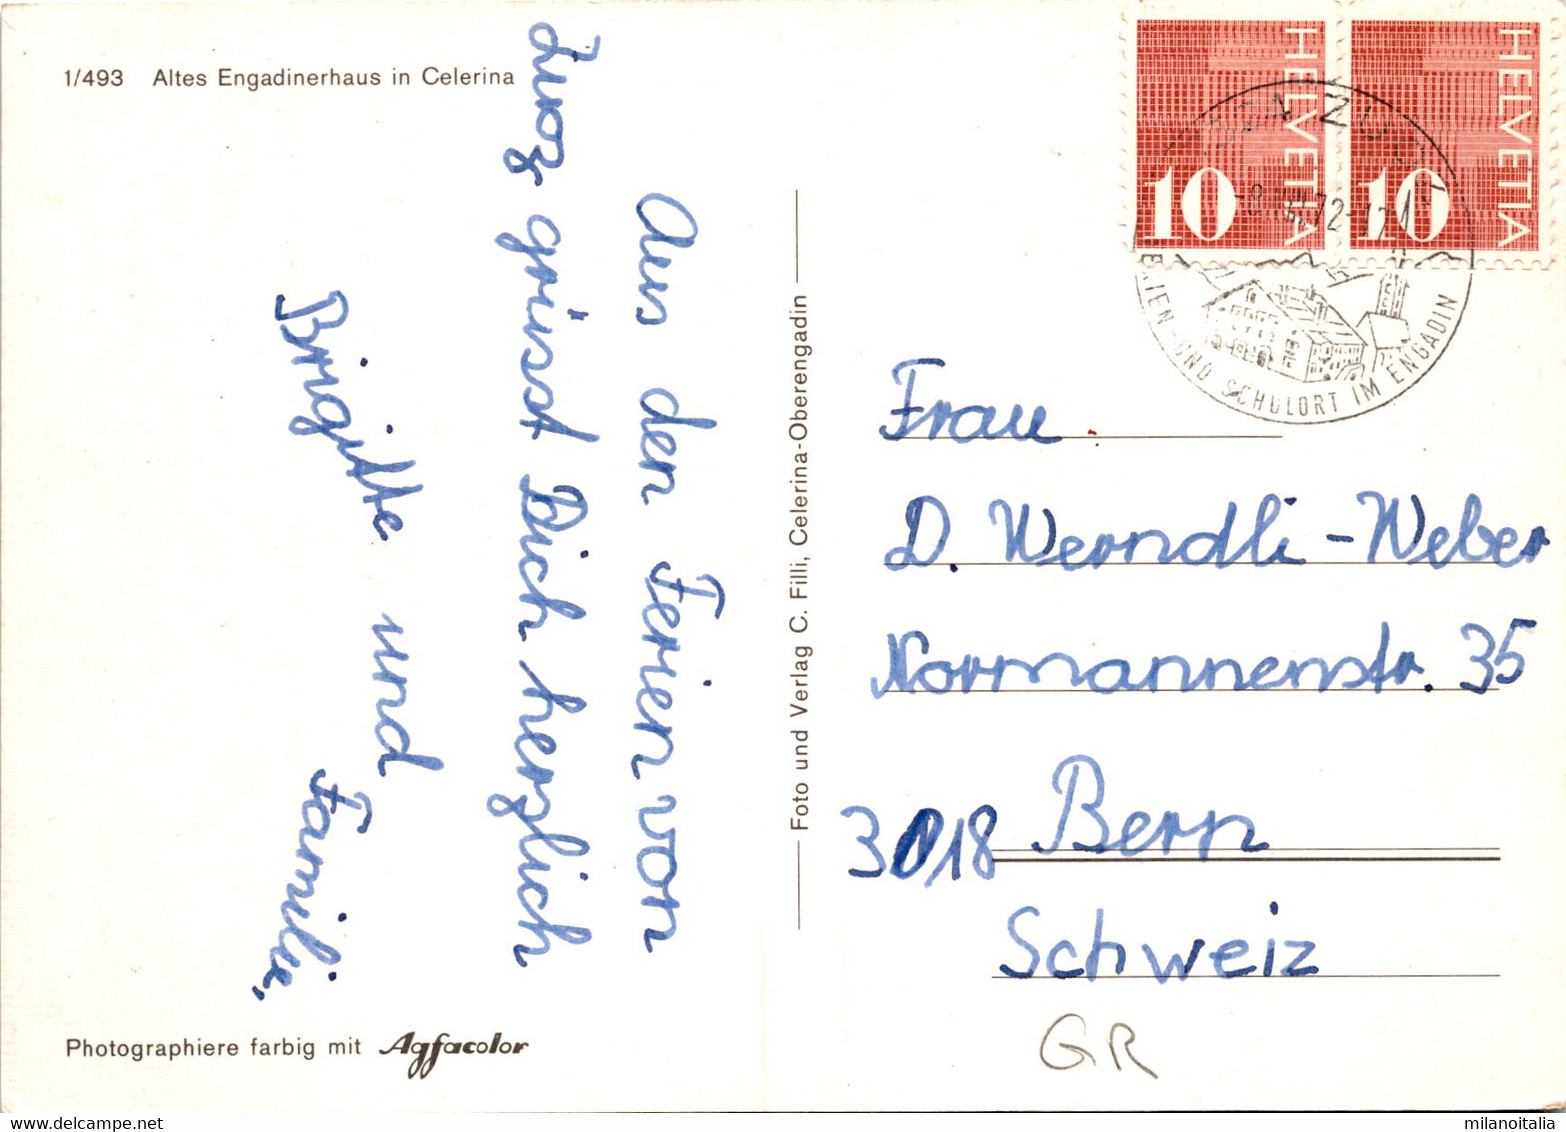 1/493 Altes Engadinerhaus in Celerina
Aus den Ferien von
Zuoz grüsst Dich herzlich
Brigitte und
Familie.
Photographiere farbig mit Agfacolor
Foto und Verlag C. Filli, Celerina-Oberengadin
HELVETIA
10
HELVETIA
10
ZUOZ
72-17
UND SCHULORT IM ENGADIN
Frau
D. Werndli-Weber
Normannenstr. 35
3018 Bern
Schweiz
GR
milanoitalia